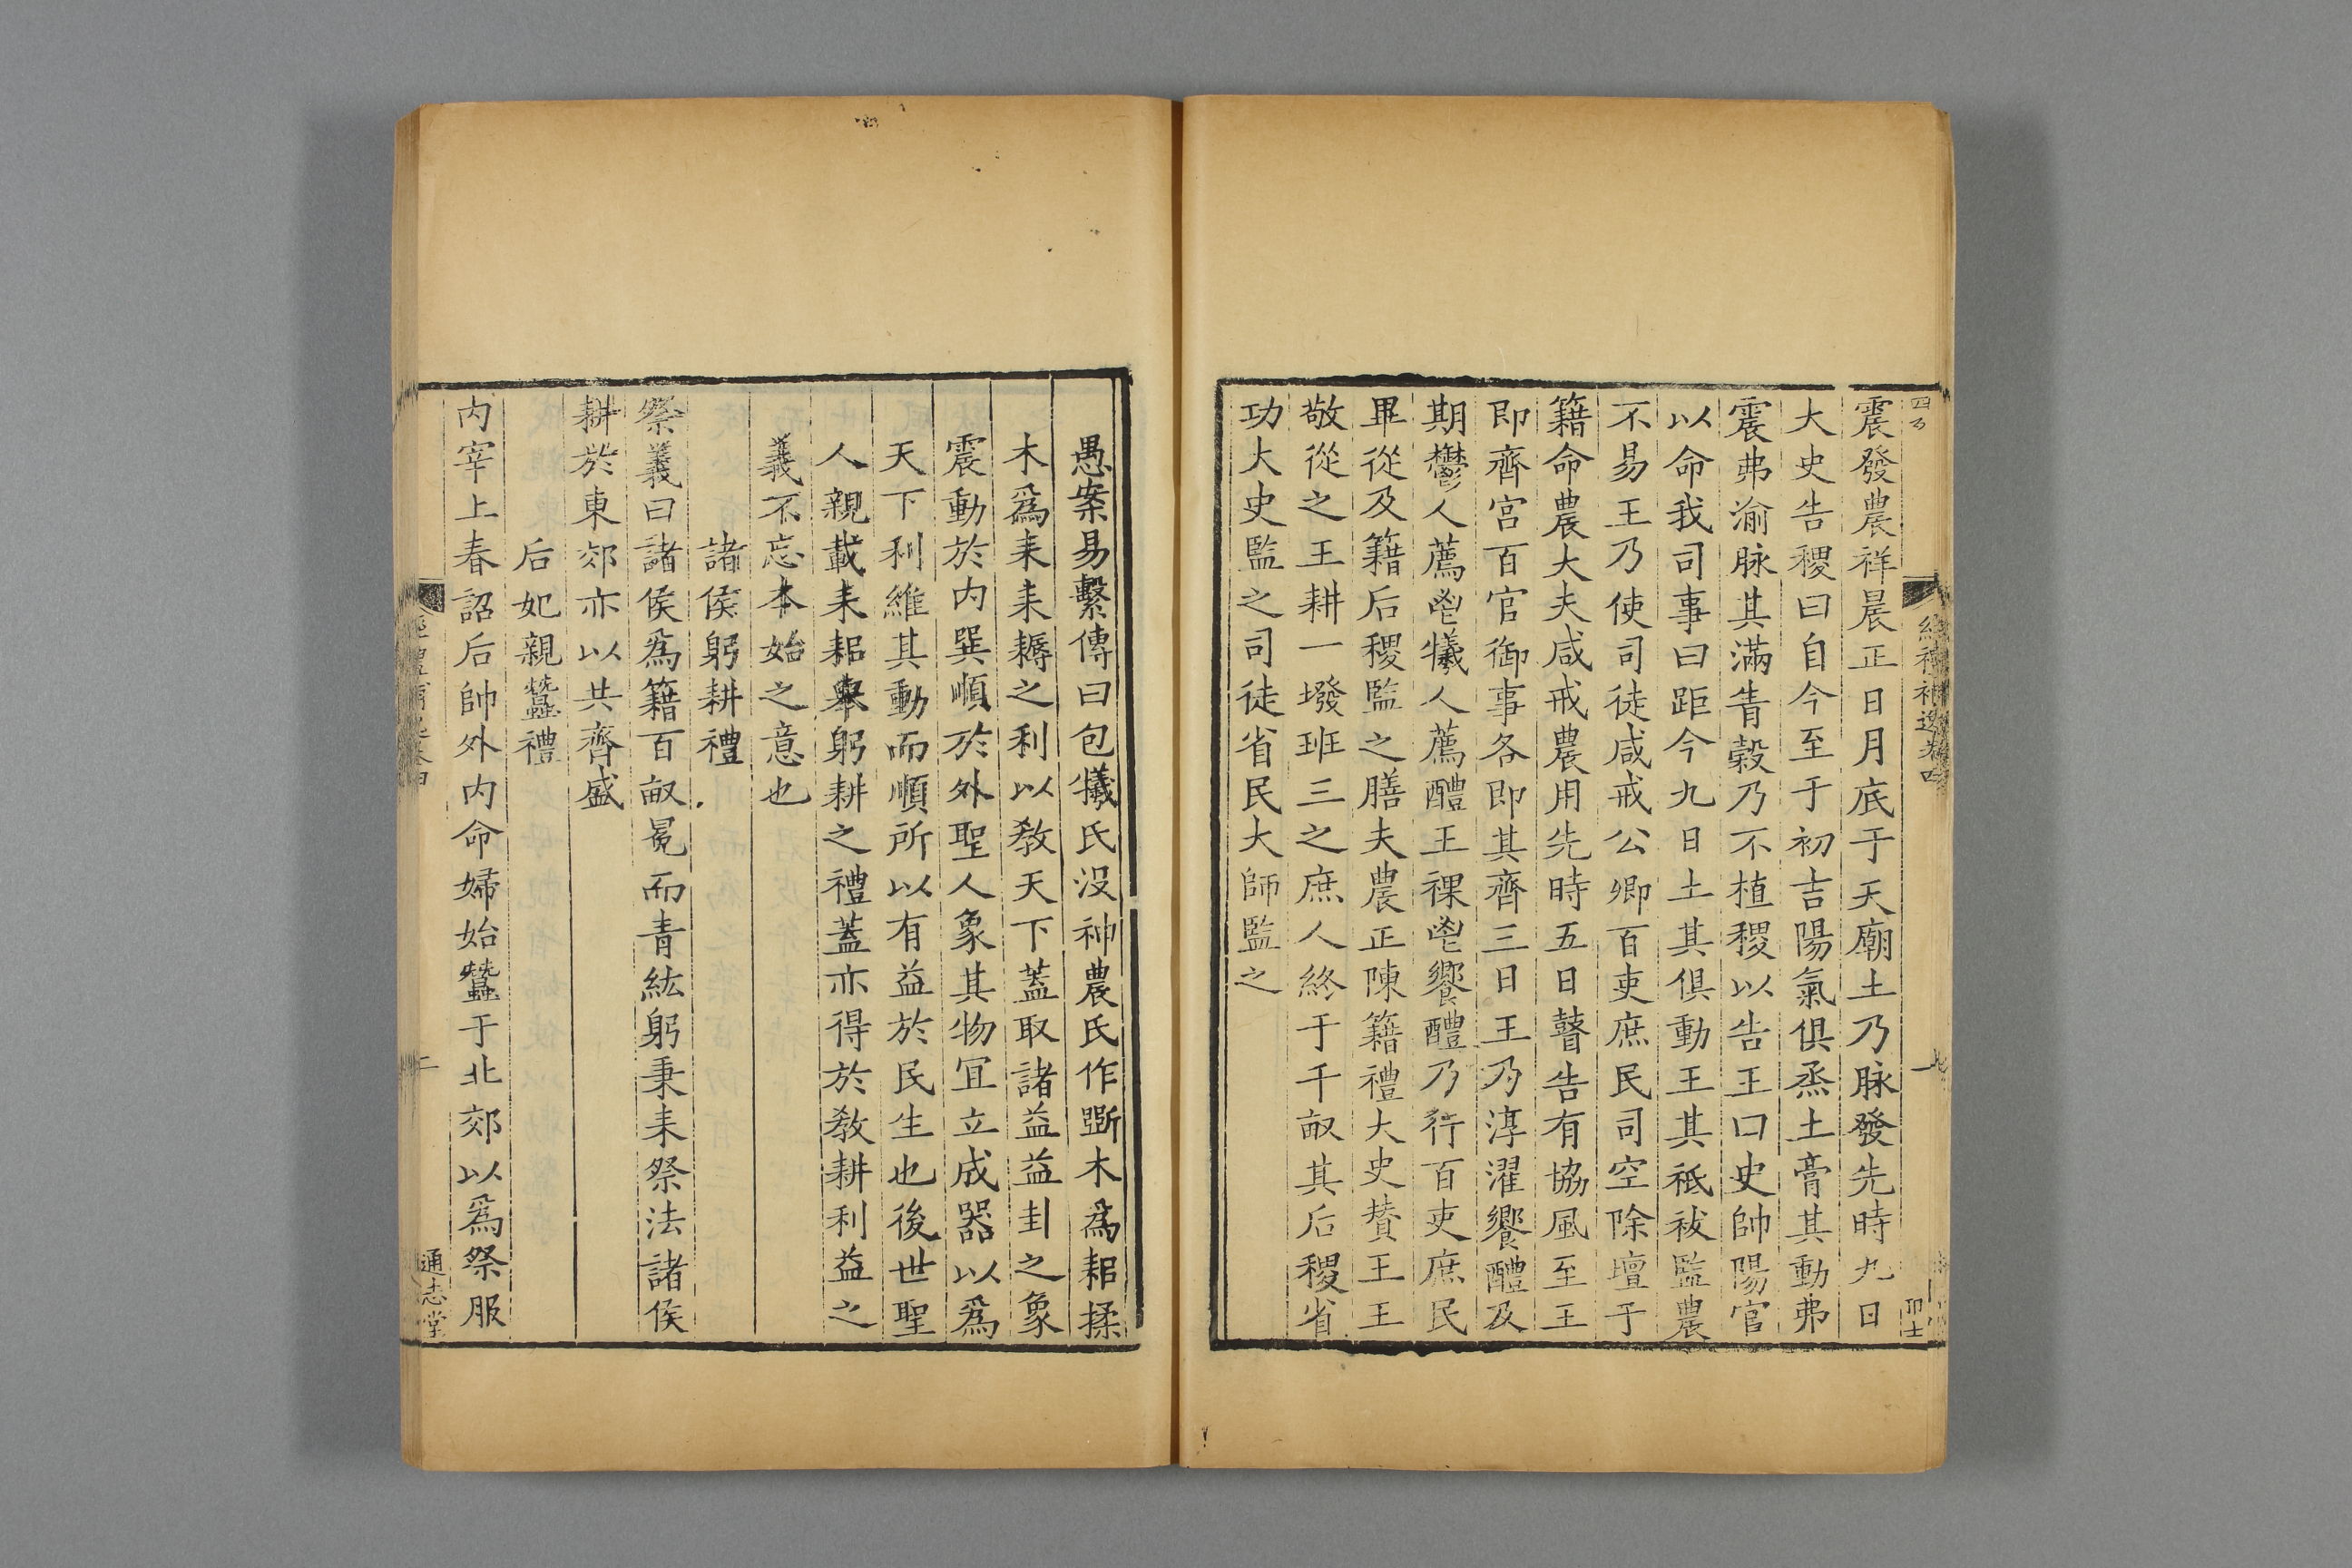 震發農祥晨正日月底于天廟土乃脉發先時九日
大史告稷曰自今至于初吉陽氣俱烝土膏其動弗
震弗渝脉其滿眚穀乃不植稷以告王曰史帥陽官
以命我司事曰距今九日土其俱動王其祗祓監農
不易王乃使司徒咸戒公卿百吏庶民司空除壇于
籍命農大夫咸戒農用先時五日瞽告有協風至王
即齊宮百官御事各即其齊三日王乃淳濯饗醴及
期鬱人薦鬯犧人薦醴王祼鬯饗醴乃行百吏庶民
畢從及籍后稷監之膳夫農正陳籍禮大史贊王王
敬從之王耕一墢班三之庶人終于千畝其后稷省
功大史監之司徒省民大師監之
愚案易繫傳曰包犧氏沒神農氏作斲木爲耜揉
木爲耒耒耨之利以敎天下蓋取諸益益卦之象
震動於内巽順於外聖人象其物宜立成器以爲
天下利維其動而順所以有益於民生也後世聖
人親載耒耜舉躬耕之禮蓋亦得於敎耕利益之
義不忘本始之意也
諸侯躬耕禮
祭義曰諸侯爲籍百畝冕而青紘躬秉耒祭法諸侯
耕於東郊亦以共齊盛
后妃親蠶禮
内宰上春詔后帥外内命婦始蠶于北郊以爲祭服
通志堂